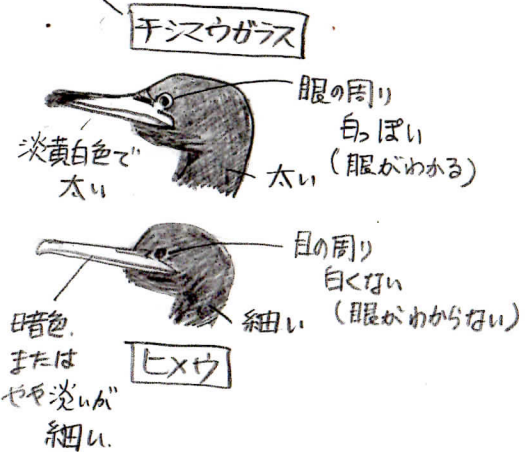 チシマウガラス
眼の周り
白っぽい
(眼がわかる)
淡黄白色で
太い
太い
目の周り
白くない
(眼がわからない)
細い
暗色.
または
やや淡いが
細い.
ヒメウ